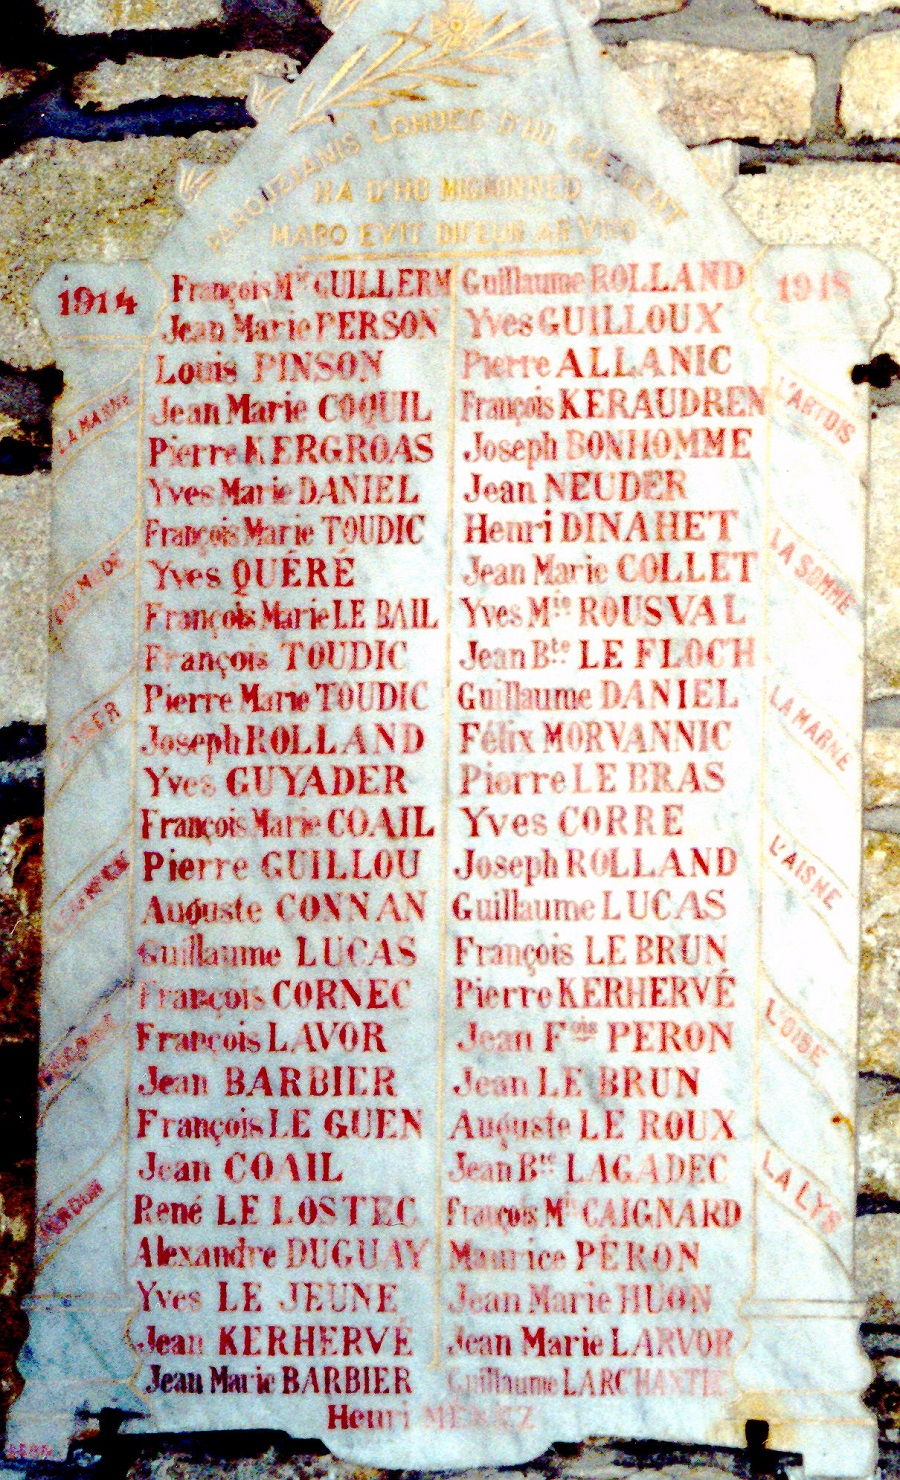 PARQUZIANIS LOHUEC D'HO
HA D'HO
MARO EVIT AR VRO
1914
1918
François Mie GUILLERM
Jean Marie PERSON
Louis PINSON
Jean Marie COQUIL
Pierre KERGROAS
Yves Marie DANIEL
François Marie TOUDIC
Yves QUÉRÉ
François Marie LE BAIL
François TOUDIC
Pierre Marie TOUDIC
Joseph ROLLAND
Yves GUYADER
François Marie COAIL
Pierre GUILLOU
Auguste CONNAN
Guillaume LUCAS
François CORNEC
François LAVOR
Jean BARBIER
François LE GUEN
Jean COAIL
René LE LOSTEC
Alexandre DUGUAY
Yves LE JEUNE
Jean KERHERVÉ
Jean Marie BARBIER
Guillaume ROLLAND
Yves GUILLOUX
Pierre ALLANIC
François KERAUDREN
Joseph BONHOMME
Jean NEUDER
Henri DINAHET
Jean Marie COLLET
Yves Mie ROUSVAL
Jean Bte LE FLOCH
Guillaume DANIEL
Félix MORVANNIC
Pierre LE BRAS
Yves CORRE
Joseph ROLLAND
Guillaume LUCAS
François LE BRUN
Pierre KERHERVÉ
Jean Fois PERON
Jean LE BRUN
Auguste LE ROUX
Jean Bte LAGADEC
François Mie CAIGNARD
Maurice PÉRON
Jean Marie HUON
Jean Marie LARVOR
Guillaume LARCHANTEC
Henri
LA MARNE
DIXMUDE
YSER
VERDUN
L'ARTOIS
LA SOMME
LA MARNE
L'AISNE
L'OISE
LA LYS